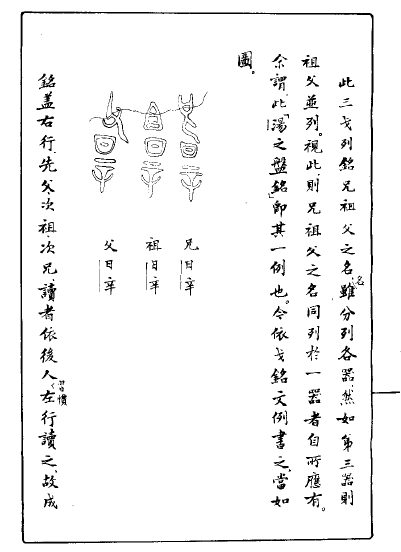 此三戈列銘兄祖父之名,雖分列各器,然如第三器則
祖父並列。視此,則兄祖父之名同列於一器者自所應有。
余謂此「湯之盤銘」即其一例也。今依戈銘文例書之,當如
圖。
兄日辛
祖日辛
父日辛
銘蓋右行,先父、次祖、次兄,讀者依後人習慣左行讀之,故成